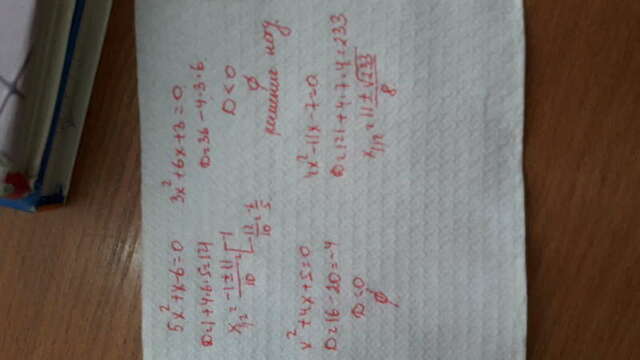 5x²+x-6=0
D=1+4·6·5=121
x₁/₂=(-1±11)/10=[1
-12/10=-6/5
3x²+6x+8=0
D=36-4·3·6
D<0
∅
решение нету
x²+4x+5=0
D=16-20=-4
D<0
∅
4x²-11x-7=0
D=121+4·7·4=233
x₁/₂=(11±√233)/8